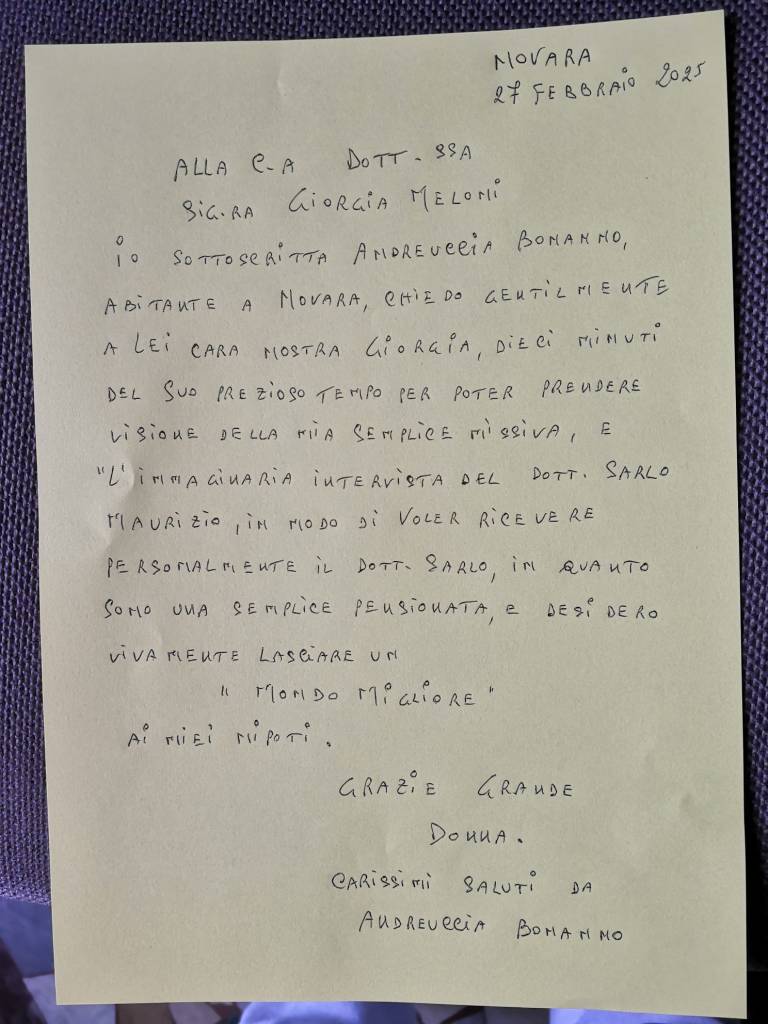 NOVARA
27 FEBBRAIO 2025
ALLA C-A DOTT-SSA
SIG.RA GIORGIA MELONI
IO SOTTOSCRITTA ANDREUCCIA BONANNO,
ABITANTE A NOVARA, CHIEDO GENTILMENTE
A LEI CARA NOSTRA GIORGIA, DIECI MINUTI
DEL SUO PREZIOSO TEMPO PER POTER PRENDERE
VISIONE DELLA MIA SEMPLICE MISSIVA, E
"L'IMMAGINARIA INTERVISTA DEL DOTT. SARLO
MAURIZIO, IN MODO DI VOLER RICEVERE
PERSONALMENTE IL DOTT. SARLO, IN QUANTO
SONO UNA SEMPLICE PENSIONATA, E DESIDERO
VIVAMENTE LASCIARE UN
" MONDO MIGLIORE "
AI MIEI NIPOTI.
GRAZIE GRANDE
DONNA.
CARISSIMI SALUTI DA
ANDREUCCIA BONANNO